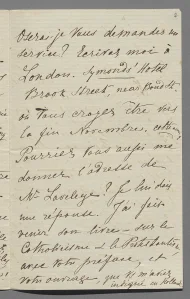 2
Oserai-je vous demander un
service? Ecrivez moi à
London. Symonds' Hotel
Brook Street, near Bond St.
où vous croyez être vers
la fin Novembre,
Pourriez vous aussi me
donner l'adresse de
Mr Laveleye? Je lui dois
une réponse. J'ai fait
venir son livre – sur le
Catholicisme & le Protestantisme
avec votre préface, et
votre ouvrage, que vous m'avez
indiqué